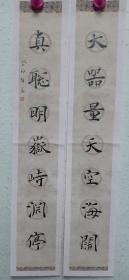 大器量天空海闊
真聪明嶽峙淵停